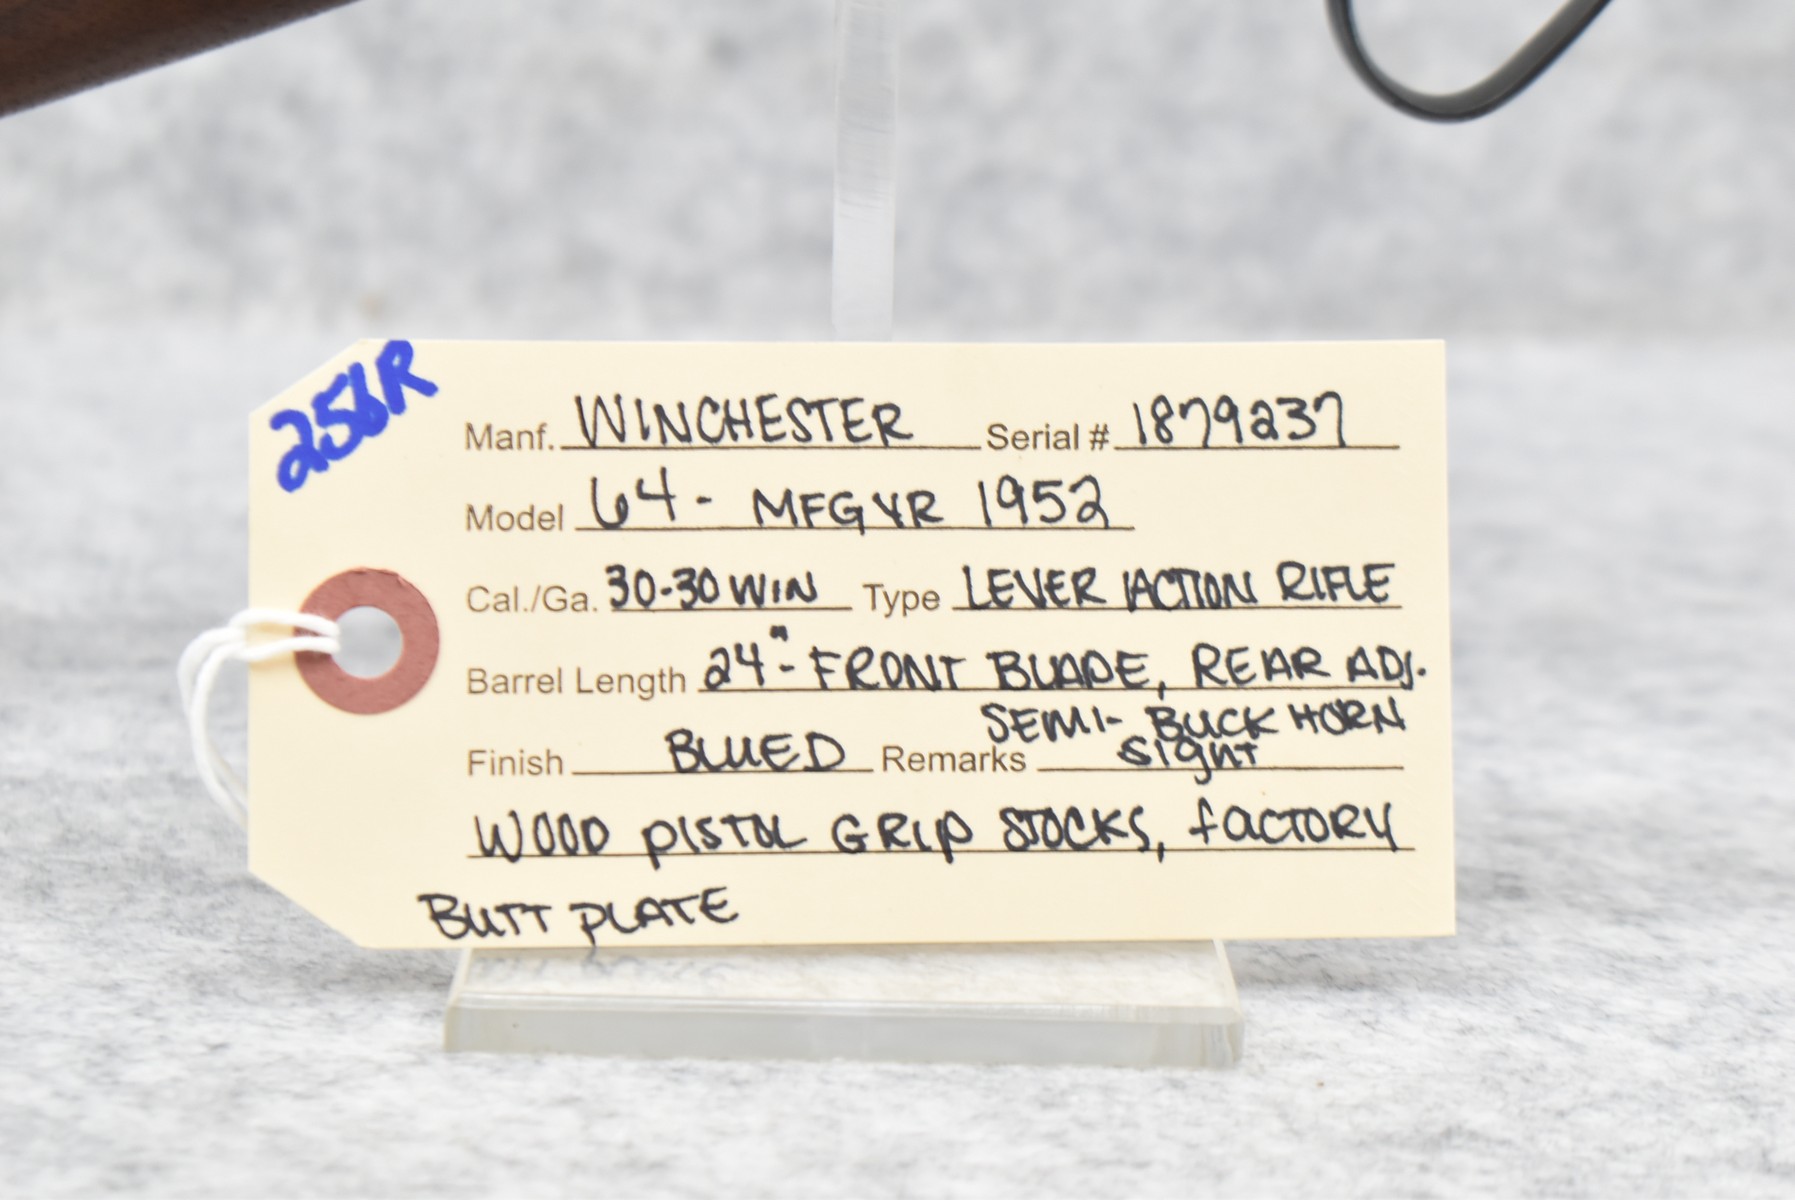 256R
Manf. WINCHESTER Serial # 1879237
Model 64 - MFG YR 1952
Cal./Ga. 30-30 WIN Type LEVER ACTION RIFLE
Barrel Length 24" - FRONT BLADE, REAR ADJ.
SEMI- BUCK HORN
Finish BLUED Remarks sight
WOOD PISTOL GRIP STOCKS, FACTORY
BUTT PLATE